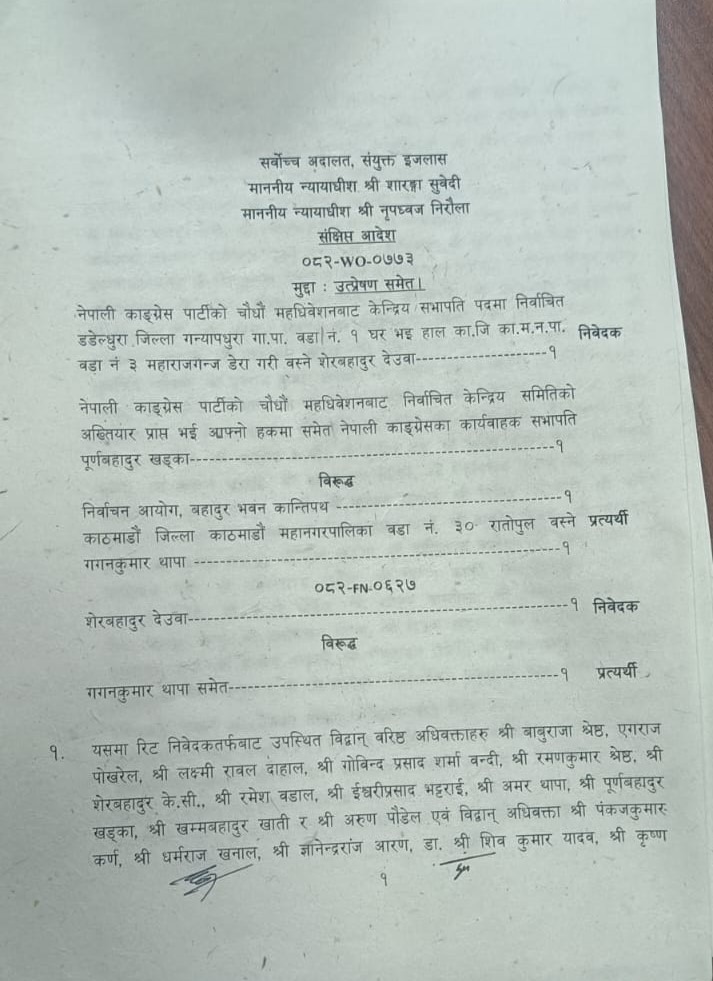 सर्वोच्च अदालत, संयुक्त इजलास
माननीय न्यायाधीश श्री शारङ्गा सुवेदी
माननीय न्यायाधीश श्री नृपध्वज निरौला
संक्षिप्त आदेश
०८२-WO-०७७३
मुद्दा : उत्प्रेषण समेत।
नेपाली काङ्ग्रेस पार्टीको चौधौं महधिवेशनबाट केन्द्रिय सभापति पदमा निर्वाचित
डडेल्धुरा जिल्ला गन्यापधुरा गा.पा. वडा नं. १ घर भइ हाल का.जि का.म.न.पा. निवेदक
वडा नं ३ महाराजगन्ज डेरा गरी वस्ने शेरबहादुर देउवा---------------------१
नेपाली काङ्ग्रेस पार्टीको चौधौं महधिवेशनबाट निर्वाचित केन्द्रिय समितिको
अख्तियार प्राप्त भई आफ्नो हकमा समेत नेपाली काङ्ग्रेसका कार्यवाहक सभापति
पूर्णबहादुर खड्का----------------------------------------------------------१
विरूद्ध
निर्वाचन आयोग, बहादुर भवन कान्तिपथ ------------------------------------१
काठमाडौं जिल्ला काठमाडौं महानगरपालिका वडा नं. ३० रातोपुल वस्ने प्रत्यर्थी
गगनकुमार थापा ----------------------------------------------------------१
०८२-FN-०६२७
शेरबहादुर देउवा------------------------------------------------------------१ निवेदक
विरूद्ध
गगनकुमार थापा समेत-----------------------------------------------------१ प्रत्यर्थी
१. यसमा रिट निवेदकतर्फबाट उपस्थित विद्वान् वरिष्ठ अधिवक्ताहरु श्री बाबुराजा श्रेष्ठ, एगराज
पोखरेल, श्री लक्ष्मी रावल दाहाल, श्री गोविन्द प्रसाद शर्मा वन्दी, श्री रमणकुमार श्रेष्ठ, श्री
शेरबहादुर के.सी., श्री रमेश वडाल, श्री ईश्वरीप्रसाद भट्टराई, श्री अमर थापा, श्री पूर्णबहादुर
खड्का, श्री खम्मबहादुर खाती र श्री अरुण पौडेल एवं विद्वान् अधिवक्ता श्री पंकजकुमार
कर्ण, श्री धर्मराज खनाल, श्री ज्ञानेन्द्रराज आरण, डा. श्री शिव कुमार यादव, श्री कृष्ण
१